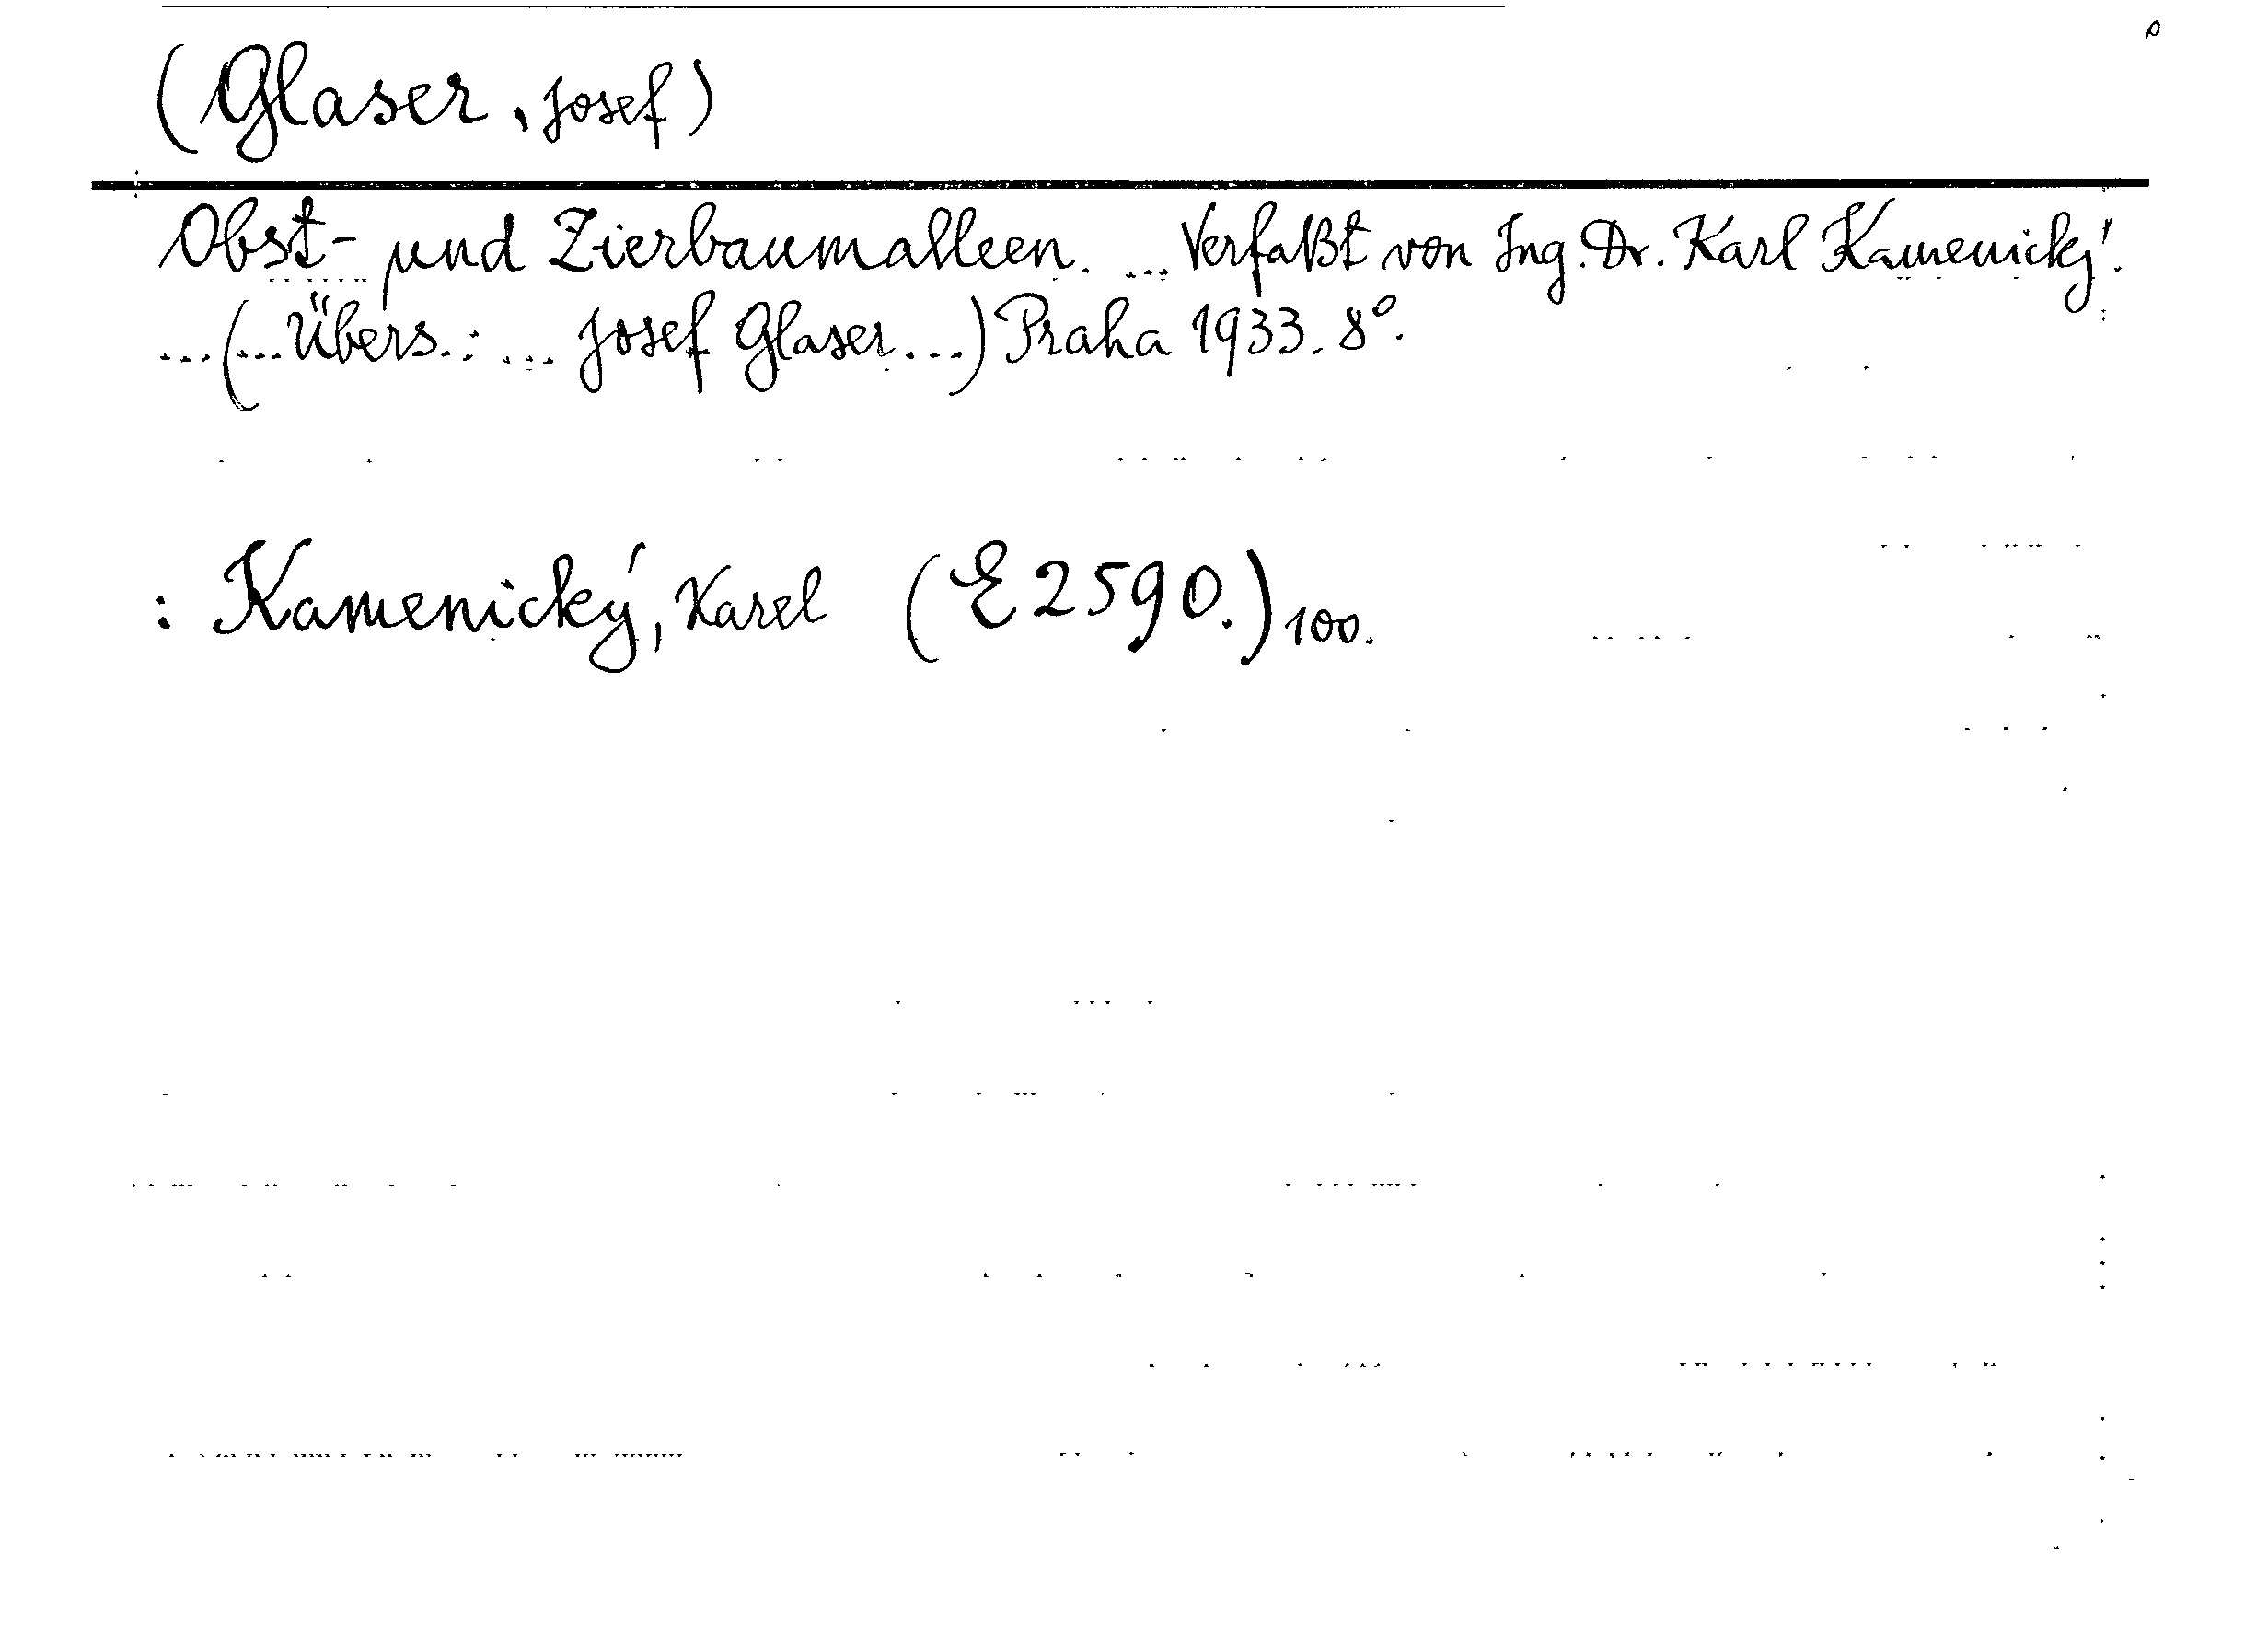 (Glaser, Josef)
Obst- und Zierbaumalleen. ... Verfaßt von Ing. Dr. Karl Kamenický.
...(...Übers.: ... Josef Glaser...) Praha 1933. 8°.
: Kamenický, Karel (E 2590.) 100.